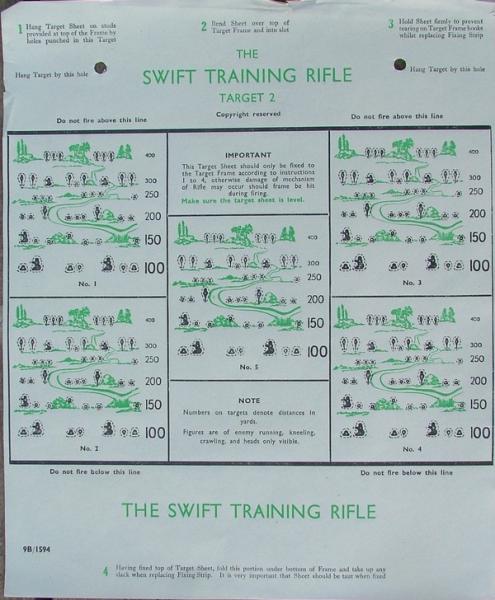 1 Hang Target Sheet on studs
provided at top of the Frame by
holes punched in this Target
2 Bend Sheet over top of
Target Frame and into slot
3 Hold Sheet firmly to prevent
tearing on Target Frame hooks
whilst replacing Fixing Strip
Hang Target by this hole
Hang Target by this hole
THE
SWIFT TRAINING RIFLE
TARGET 2
Copyright reserved
Do not fire above this line
Do not fire above this line
400
300
250
200
150
100
No. 1
IMPORTANT
This Target Sheet should only be fixed to
the Target Frame according to instructions
1 to 4, otherwise damage of mechanism
of Rifle may occur should frame be hit
during firing.
Make sure the target sheet is level.
400
300
250
200
150
100
No. 3
400
300
250
200
150
100
No. 5
400
300
250
200
150
100
No. 2
NOTE
Numbers on targets denote distances in
yards.
Figures are of enemy running, kneeling,
crawling, and heads only visible.
400
300
250
200
150
100
No. 4
Do not fire below this line
Do not fire below this line
THE SWIFT TRAINING RIFLE
9B/1594
4 Having fixed top of Target Sheet, fold this portion under bottom of Frame and take up any
slack when replacing Fixing Strip. It is very important that Sheet should be taut when fixed